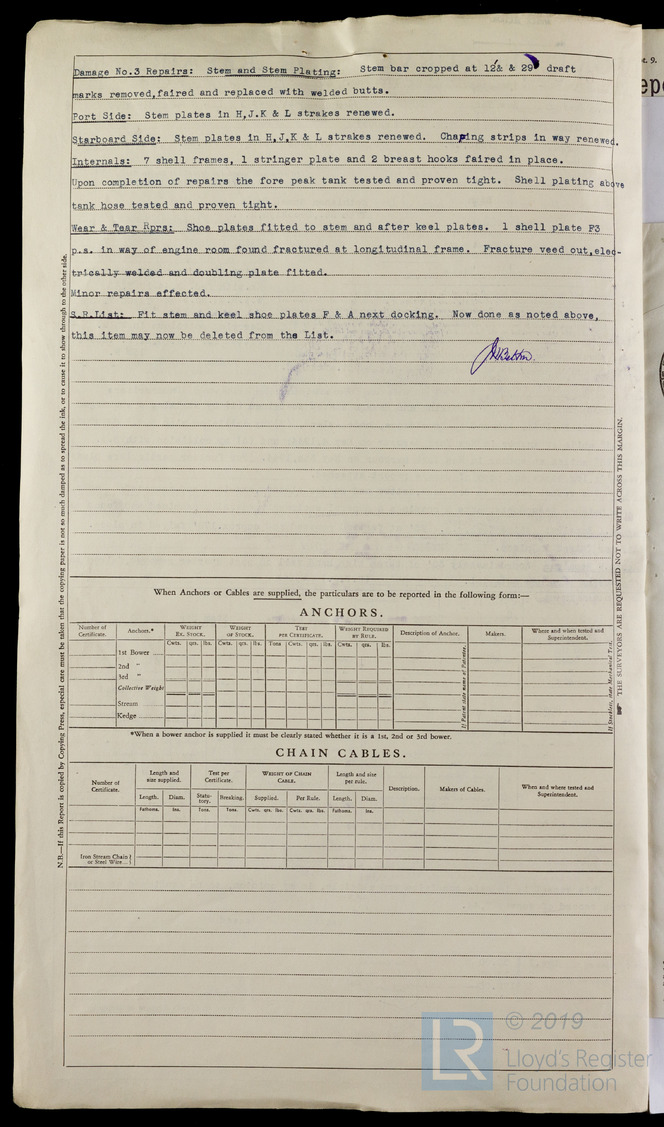 Damage No.3 Repairs: Stem and Stem Plating: Stem bar cropped at 12'& & 29' draft
marks removed,faired and replaced with welded butts.
Port Side: Stem plates in H,J.K & L strakes renewed.
Starboard Side: Stem plates in H,J,K & L strakes renewed. Chaping strips in way renewed.
Internals: 7 shell frames, 1 stringer plate and 2 breast hooks faired in place.
Upon completion of repairs the fore peak tank tested and proven tight. Shell plating above
tank hose tested and proven tight.
Wear & Tear Rprs: Shoe plates fitted to stem and after keel plates. 1 shell plate F3
p.s. in way of engine room found fractured at longitudinal frame. Fracture veed out,elec-
trically welded and doubling plate fitted.
Minor repairs effected.
S.R.List: Fit stem and keel shoe plates F & A next docking. Now done as noted above,
this item may now be deleted from the List.
N.B.—If this Report is copied by Copying Press, especial care must be taken that the copying paper is not so much damped as to spread the ink, or to cause it to show through to the other side.
THE SURVEYORS ARE REQUESTED NOT TO WRITE ACROSS THIS MARGIN.
When Anchors or Cables are supplied, the particulars are to be reported in the following form:—
ANCHORS.
Number of Certificate. Anchors.* WEIGHT EX. STOCK. WEIGHT OF STOCK. TEST PER CERTIFICATE. WEIGHT REQUIRED BY RULE. Description of Anchor. Makers. Where and when tested and Superintendent.
Cwts. qrs. lbs. Cwts. qrs. lbs. Tons Cwts. qrs. lbs. Cwts. qrs. lbs.
1st Bower
2nd "
3rd "
Collective Weight
Stream
Kedge
If Patent state name of Patentee.
If Stockless, state Mechanical Test.
*When a bower anchor is supplied it must be clearly stated whether it is a 1st, 2nd or 3rd bower.
CHAIN CABLES.
Number of Certificate. Length and size supplied. Test per Certificate. WEIGHT OF CHAIN CABLE. Length and size per rule. Description. Makers of Cables. When and where tested and Superintendent.
Length. Diam. Statutory. Breaking. Supplied. Per Rule. Length. Diam.
Fathoms. Ins. Tons. Tons. Cwts. qrs. lbs. Cwts. qrs. lbs. Fathoms. Ins.
Iron Stream Chain
or Steel Wire
LR
© 2019
Lloyd's Register
Foundation